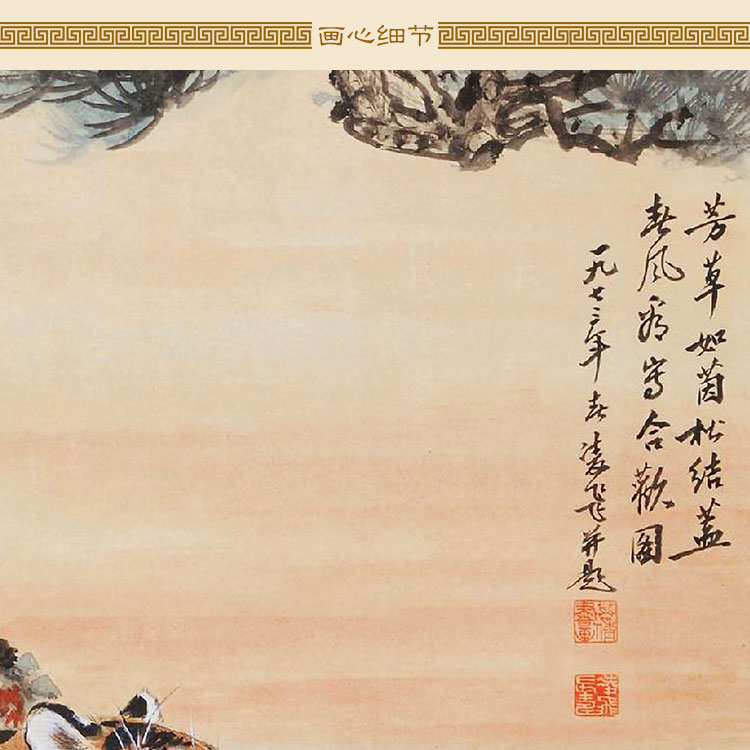 画心细节
芳草如茵松结盖
春风为写合歡图
一九七三年春凌飞并题